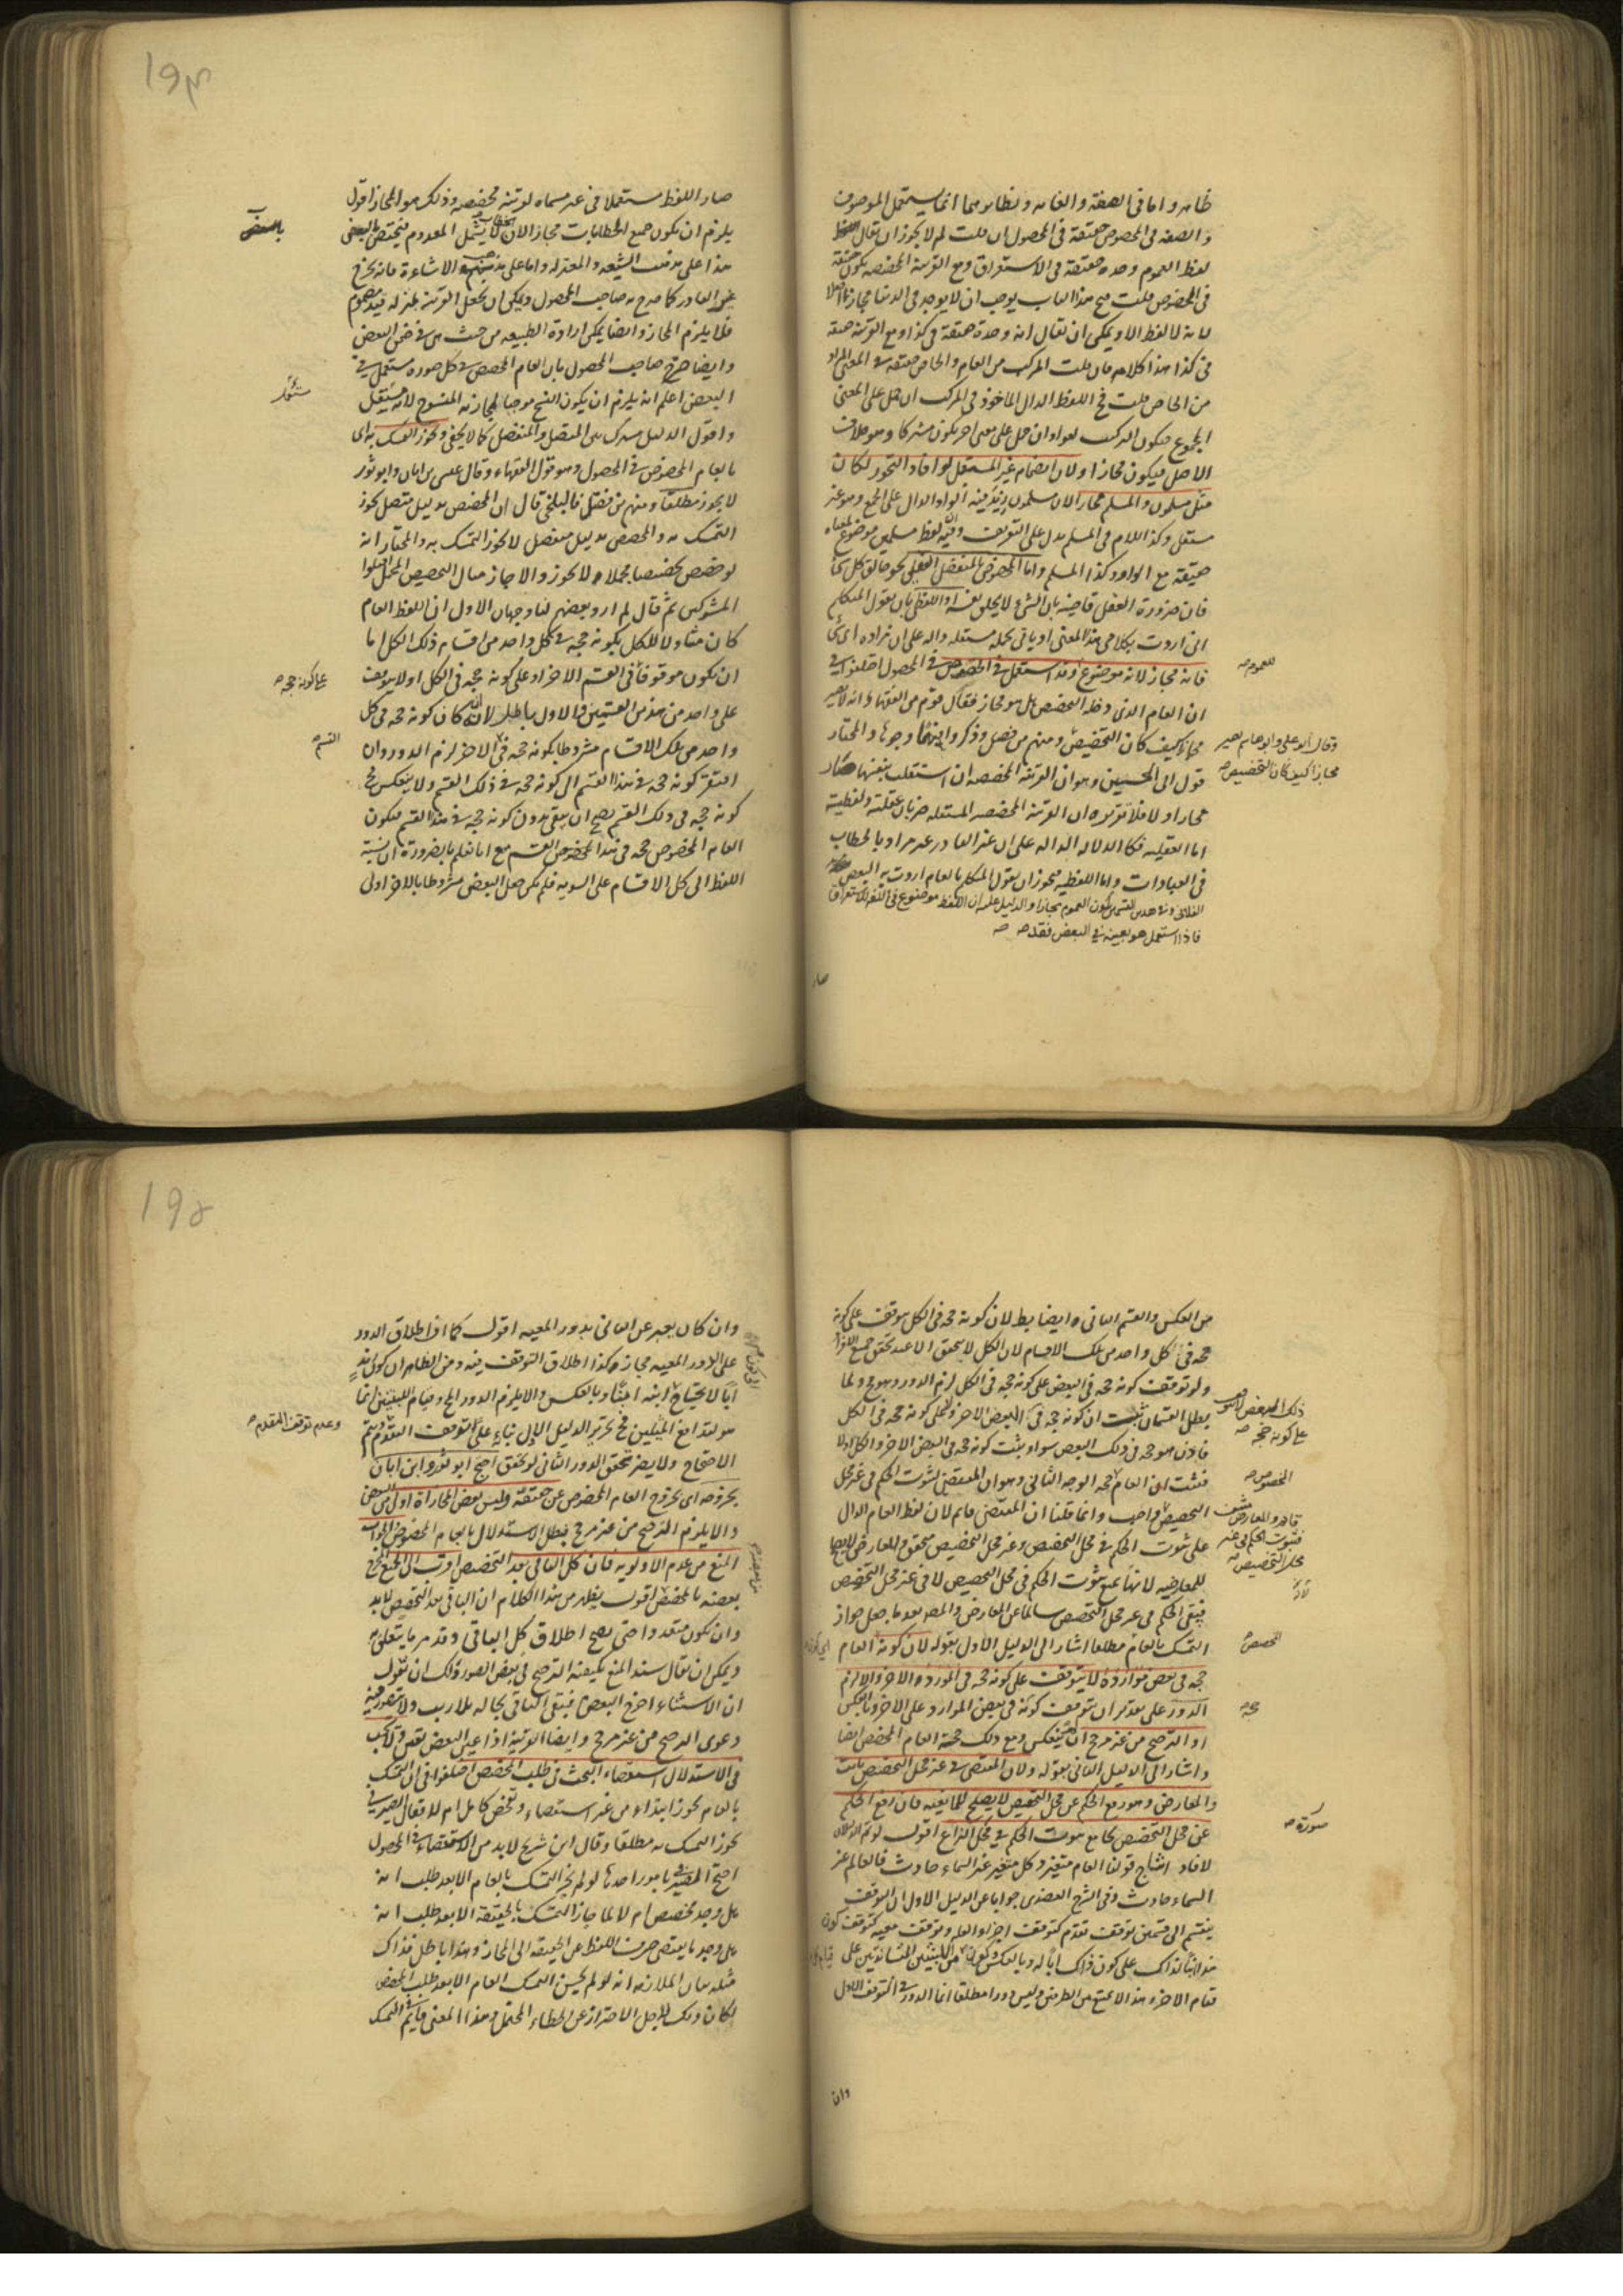 ظاهر واما فى الصفة والغاية ونظايرهما انما يستعمل الموصوف
والصفة فى الخصوص حقيقة فى المحصول ان قلت لم لا يجوز ان يقال
لفظ العموم وحده حقيقة فى الاستغراق ومع القرينة المخصصة يكون حقيقة
فى الخصوص قلت فتح هذا الباب يوجب ان لا يوجد فى الدنيا مجاز اصلا
لانه لا لفظ الا ويمكن ان يقال انه وحده حقيقة فى كذا ومع القرينة حقيقة
فى كذا هذا كلامه فان قلت المركب من العام والخاص حقيقة فى المعنى المراد
من الخاص قلت فح اللفظ الدال الماخوذ فى المركب ان حمل على المعنى
المجموع فيكون التركيب لغوا وان حمل على معنى اخر يكون مشتركا وهو خلاف
الاصل فيكون مجازا ولان انضمام غير المستقل لو افاد التجوز لكان
مثل مسلمون والمسلم مجازا لان مسلمون زيد فيه الواو الدال على الجمع وهو غير
مستقل وكذا اللام فى المسلم يدل على التعريف وفيه لفظ مسلمين موضوع لمعناه
حقيقة مع الواو وكذا المسلم واما المخصوص بالمنفصل العقلى نحو خالق كل شئ
فان ضرورة العقل قاضية بان الشئ لا يخلق نفسه او اللفظى بان يقول المتكلم
انى اردت بكلامى هذا المعنى او ياتى بجملة مستقلة دالة على ان مراده اى شئ
فانه مجاز لانه موضوع وقد استعمل فى الخصوص فى المحصول اختلفوا فى
للعموم صح
ان العام الذى دخله التخصيص هل هو مجاز فقال قوم من الفقهاء انه لا يصير
مجازا كيف كان التخصيص ومنهم من فصل وذكروا فيها وجوها والمختار
وقال ابو على وابو هاشم يصير
مجازا كيف كان التخصيص صح
قول ابى الحسين وهو ان القرينة المخصصة ان استقلت بنفسها صار
مجازا والا فلا تقريره ان القرينة المخصصة المستقلة ضربان عقلية ولفظية
اما العقلية فكالدلالة الدالة على ان غير القادر غير مراد بالخطاب
فى العبادات واما اللفظية فيجوز ان يقول المتكلم بالعام اردت به البعض
الفلانى وفى هذين القسمين يكون العموم مجازا والدليل عليه ان اللفظ موضوع فى اللغة للاستغراق
فاذا استعمل هو بعينه فى البعض فقد صح
صار
صار اللفظ مستعملا فى غير مسماه لقرينة مخصصة وذلك هو المجاز اقول
يلزم ان يكون جميع الخطابات مجازا لان الخطاب لا يشمل المعدوم فيختص بالبعض
بالبعض
هذا على مذهب الشيعة والمعتزلة واما على مذهب الاشاعرة فانه يخرج
غير القادر كما صرح به صاحب المحصول ويمكن ان يجعل القرينة بمنزلة قيد
فلا يلزم المجاز وايضا يمكن ارادة الطبيعة من حيث هى فى ضمن البعض
وايضا صرح صاحب المحصول بان العام المخصص فى كل صورة مستعمل فى
البعض اعلم انه يلزم ان يكون النسخ موجبا لمجازية المنسوخ لانه مستقل
واقول الدليل مشترك بين المتصل والمنفصل كما لا يخفى ويجوز التمسك به اى
بالعام المخصوص فى المحصول وهو قول الفقهاء وقال عيسى بن ابان وابو ثور
لا يجوز مطلقا ومنهم من فصل فالبلخى قال ان المخصص بدليل متصل يجوز
التمسك به والمخصص بدليل منفصل لا يجوز التمسك به والمختار انه
لو خصص تخصيصا مجملا لا يجوز والا جاز مثال التخصيص المجمل اقتلوا
المشركين ثم قال لم ارد بعضهم لنا وجهان الاول ان اللفظ العام
كان متناولا للكل فكونه حجة فى كل واحد من اقسام ذلك الكل اما
ان يكون موقوفا فى القسم الاخر او على كونه حجة فى الكل او لا يتوقف
على كونه حجة صح
على واحد من هذين القسمين والاول باطل لانه ان كان كونه حجة فى كل
واحد من تلك الاقسام مشروطا بكونه حجة فى الاخر لزم الدور وان
القسم صح
افتقر كونه حجة فى هذا القسم الى كونه حجة فى ذلك القسم ولا ينعكس فح
كونه حجة فى ذلك القسم يصح ان يبقى بدون كونه حجة فى هذا القسم فيكون
العام المخصوص حجة فى هذا القسم مع انا نعلم بالضرورة ان نسبة
اللفظ الى كل الاقسام على السوية فلم يكن جعل البعض مشروطا بالاخر اولى
من العكس والقسم الثانى ايضا بط لان كونه حجة فى الكل موقوف على كونه
حجة فى كل واحد من تلك الاقسام لان الكل لا يتحقق الا عند تحقق جميع الافراد
ولو توقف كونه حجة فى البعض على كونه حجة فى الكل لزم الدور وهو مح ولما
بطل القسمان ثبت ان كونه حجة فى ذلك البعض لا يتوقف على كونه حجة فى البعض الاخر ولا على كونه حجة فى الكل
فاذن هو حجة فى ذلك البعض سواء ثبت كونه حجة فى البعض الاخر والكل او لا
فثبت ان العام المخصوص حجة الوجه الثانى وهو ان المقتضى لثبوت الحكم فى غير محل
التخصيص قائم والمعارض منتف فثبوت الحكم فى غير محل التخصيص واجب وانما قلنا ان المقتضى قايم لان لفظ العام الدال
على ثبوت الحكم فى محل التخصيص وغير محل التخصيص متحقق والمعارض لا يصلح
للمعارضة لانها تمنع ثبوت الحكم فى محل التخصيص لا فى غير محل التخصيص
فيبقى الحكم فى غير محل التخصيص سالما عن المعارض والمص بعد ما جعل جواز
التمسك بالعام مطلقا اشار الى الدليل الاول بقوله لان كونه العام
المخصص
حجة فى بعض موارده لا يتوقف على كونه حجة فى المورد الاخر والا لزم
الدور على تقدير ان يتوقف كونه فى بعض الموارد على الاخر وبالعكس
حجة
او الترجيح من غير مرجح ان لم ينعكس ومع ذلك حجة العام المخصص ايضا
واشار الى الدليل الثانى بقوله ولان المقتضى فى غير محل التخصيص ثابت
والمعارض وهو رفع الحكم عن محل التخصيص لا يصلح للمانعية فان رفع الحكم
عن محل التخصيص يجامع ثبوت الحكم فى محل النزاع اقول لو تم الدليلان
صورة صح
لافاد انتاج قولنا العام متغير وكل متغير غير السماء حادث فالعالم غير
السماء حادث وفى الشرح العضدى جوابا عن الدليل الاول ان التوقف
ينقسم الى قسمين توقف تقدم كتوقف اجزاء العلة وتوقف معية كتوقف كون
هذا ابنا لذاك على كون ذاك ابا له وبالعكس وكون قيام اللبنتين المتساندتين على
قيام الاخرى هذا لا يمتنع من الطرفين وليس دورا مطلقا انما الدور فى التوقف الاول
وان
وان كان يعبر عن الثانى بدور المعية اقول كما اذا اطلاق الدور
على الدور المعية مجاز وكذا اطلاق التوقف فيه ومن الظاهر ان كون زيد
ابا لا يحتاج الى كون ابنه ابنا وبالعكس والا يلزم الدور المح وقيام اللبنتين انما
هو لتدافع الميلين فح تحرير الدليل الاول بناء على التوقف التقدم فيتم
وعدم توقف التقدم صح
الاحتجاج ولا يضر تحقق الدور الثانى لو تحقق احتج ابو ثور وابن ابان
بخروجه اى بخروج العام المخصوص عن حقيقته وليس بعض المجازات اولى من البعض
والا يلزم الترجيح من غير مرجح فبطل الاستدلال بالعام المخصوص والجواب
المنع من عدم الاولوية فان كل الباقى بعد التخصيص اقرب الى الجميع المخرج
بعضه بالتخصيص اقول يظهر من هذا الكلام ان الباقى بعد التخصيص لا بد
وان يكون متعددا حتى يصح اطلاق كل الباقى وقد مر ما يتعلق به
ويمكن ان يقال سند المنع يكفينه الترجيح فى بعض الصور ولك ان تقول
ان الاستثناء اخرج البعض فيبقى الباقى بحاله بلا ريب ولا يتصور فيه
دعوى الترجيح من غير مرجح وايضا القرينة اذا عين البعض تعين ولا يجب
فى الاستدلال استقصاء البحث فى طلب المخصص اختلفوا فى ان التمسك
بالعام يجوز ابتداء من غير استقصاء وتفحص كامل ام لا فقال الصيرفى
يجوز التمسك به مطلقا وقال ابن شريح لا بد من الاستقصاء فى المحصول
احتج الصيرفى بامور احدها لو لم يجز التمسك بالعام الا بعد طلب انه
هل وجد مخصص ام لا لما جاز التمسك بالحقيقة الا بعد طلب انه
هل وجد ما يقتضى صرف اللفظ عن الحقيقة الى المجاز وهذا باطل فذاك
مثله بيان الملازمة انه لو لم يحسن التمسك العام الا بعد طلب المخصص
لكان ذلك لاجل الاحتراز عن الخطاء المحتمل وهذا المعنى قايم فى التمسك